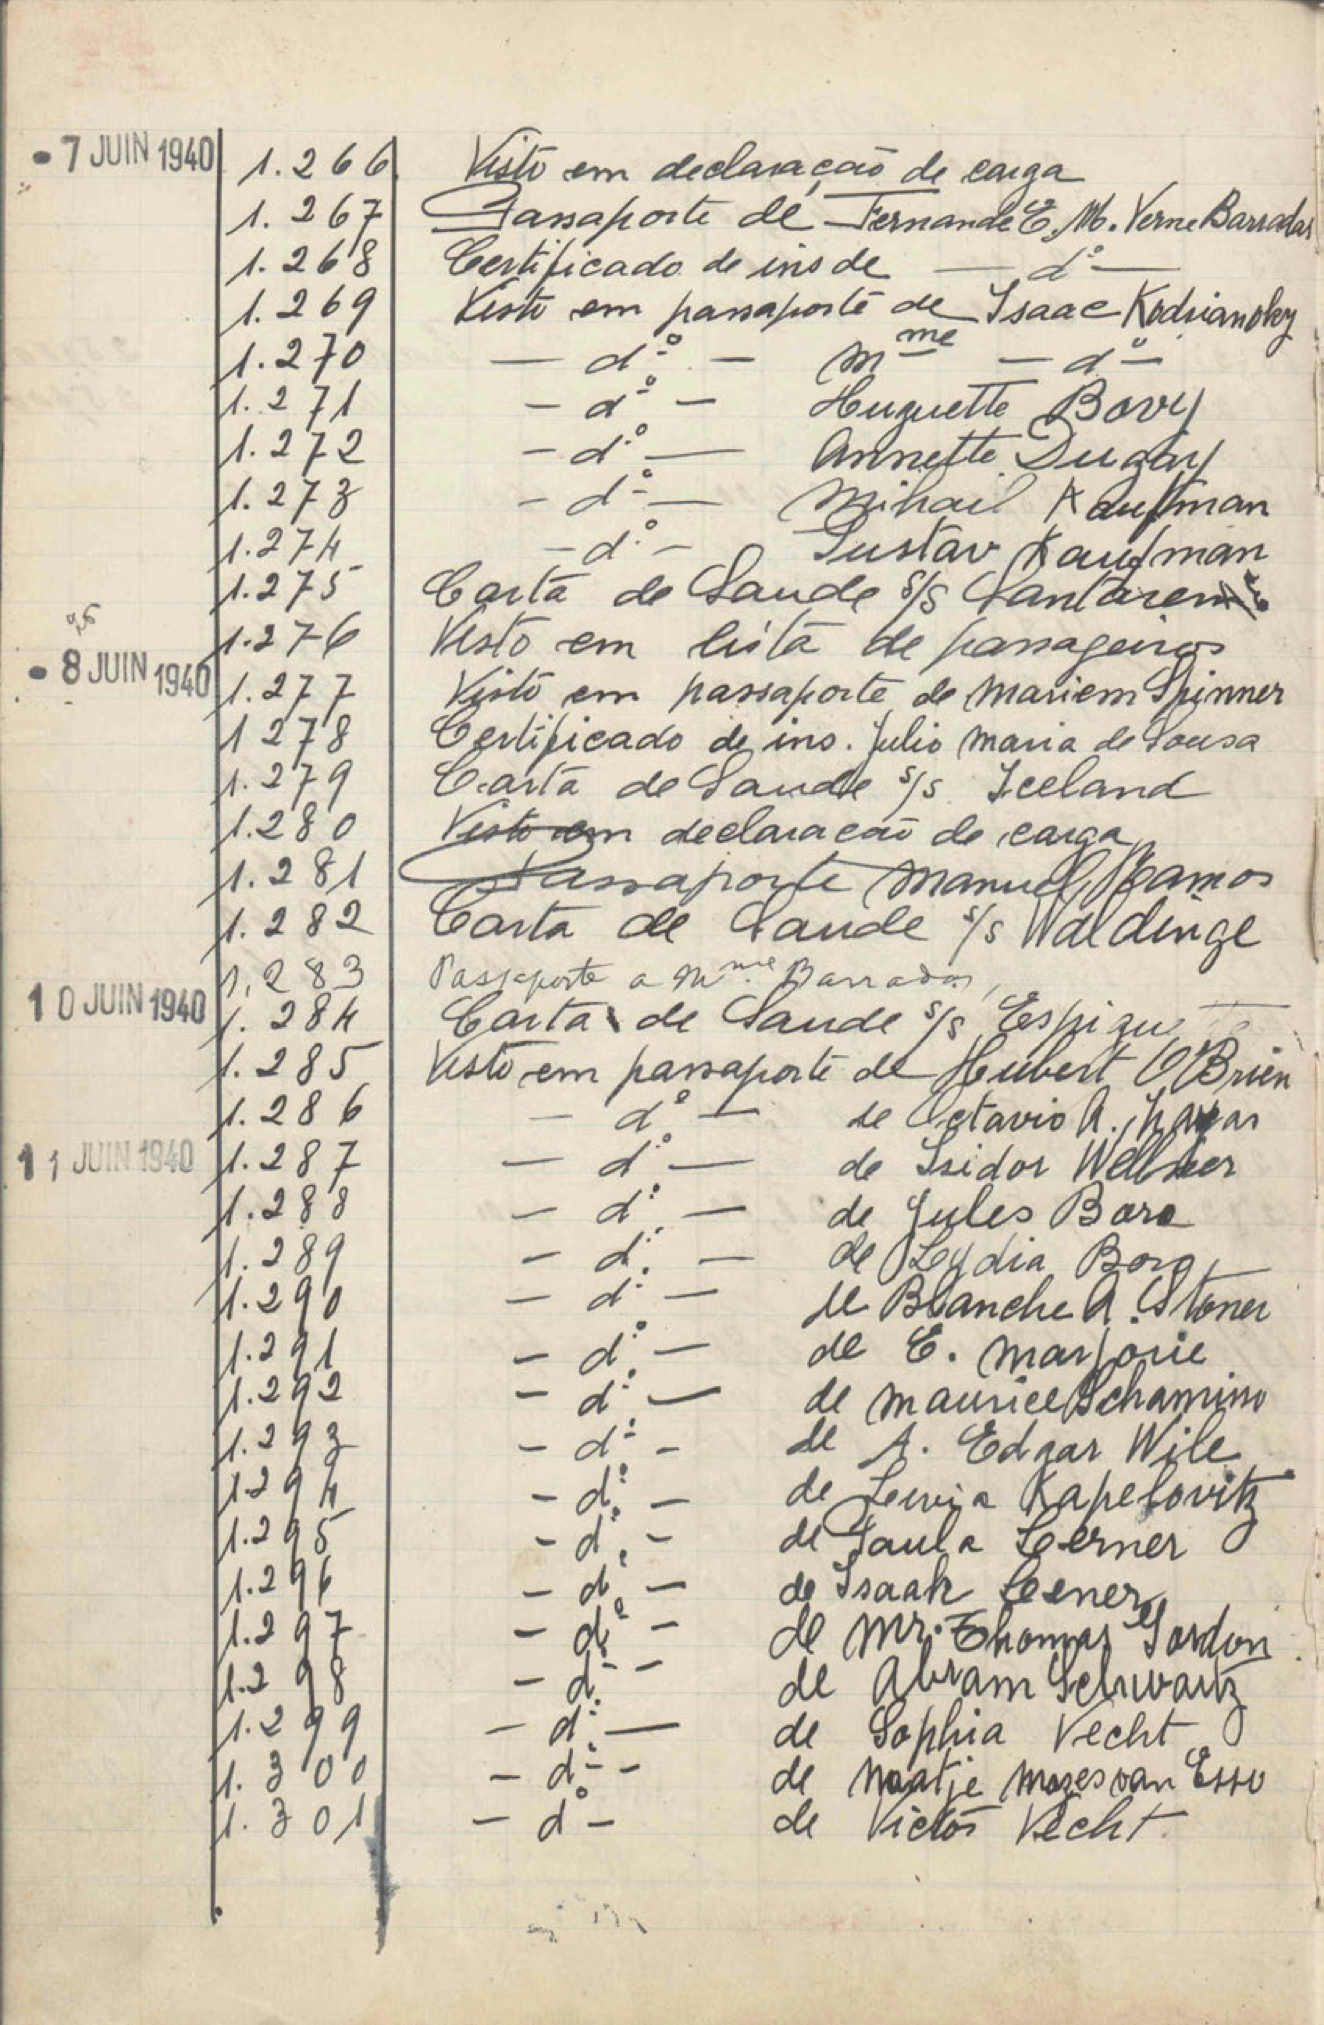 • 7 JUIN 1940 1.266 Visto em declaração de carga
1.267 Passaporte de Fernande E. M. Verne Barradas
1.268 Certificado de ins de — dº —
1.269 Visto em passaporte de Isaac
1.270 — dº — Mme — dº —
1.271 — dº — Huguette Bovy
1.272 — dº — Annette Dugay
1.273 — dº — Mihail Kauffman
1.274 — dº — Gustav Kaufman
1.275 Carta de Saude s/s Santarem
1.276 Visto em lista de passageiros
• 8 JUIN 1940 1.277 Visto em passaporte de Mariem Spinner
1 278 Certificado de ins. Julio Maria de Sousa
1.279 Carta de Saude s/s Iceland
1.280 Visto em declaracão de carga
1.281 Passaporte Manuel Ramos
1.282 Carta de Saude s/s Waldinge
1.283 Passaporte a Mme Barradas
10 JUIN 1940 1.284 Carta de Saude s/s
1.285 Visto em passaporte de Hubert O'Brien
1.286 — dº — de Octavio A.
11 JUIN 1940 1.287 — dº — de Isidor
1.288 — dº — de Jules
1.289 — dº — de Leydia
1.290 — dº — de Blanche A. Stoner
1.291 — dº — de E. Marjorie
1.292 — dº — de Maurice
1.293 — dº — de A. Edgar Wile
1.294 — dº — de Kapelovitz
1.295 — dº — de Paula Lerner
1.296 — dº — de Isaak Lerner
1.297 — dº — de Mr. Thomas Gordon
1.298 — dº — de Abram Schwartz
1.299 — dº — de Sophia Vecht
1.300 — dº — de Naatje Mozes van Esso
1.301 — dº — de Victor Vecht